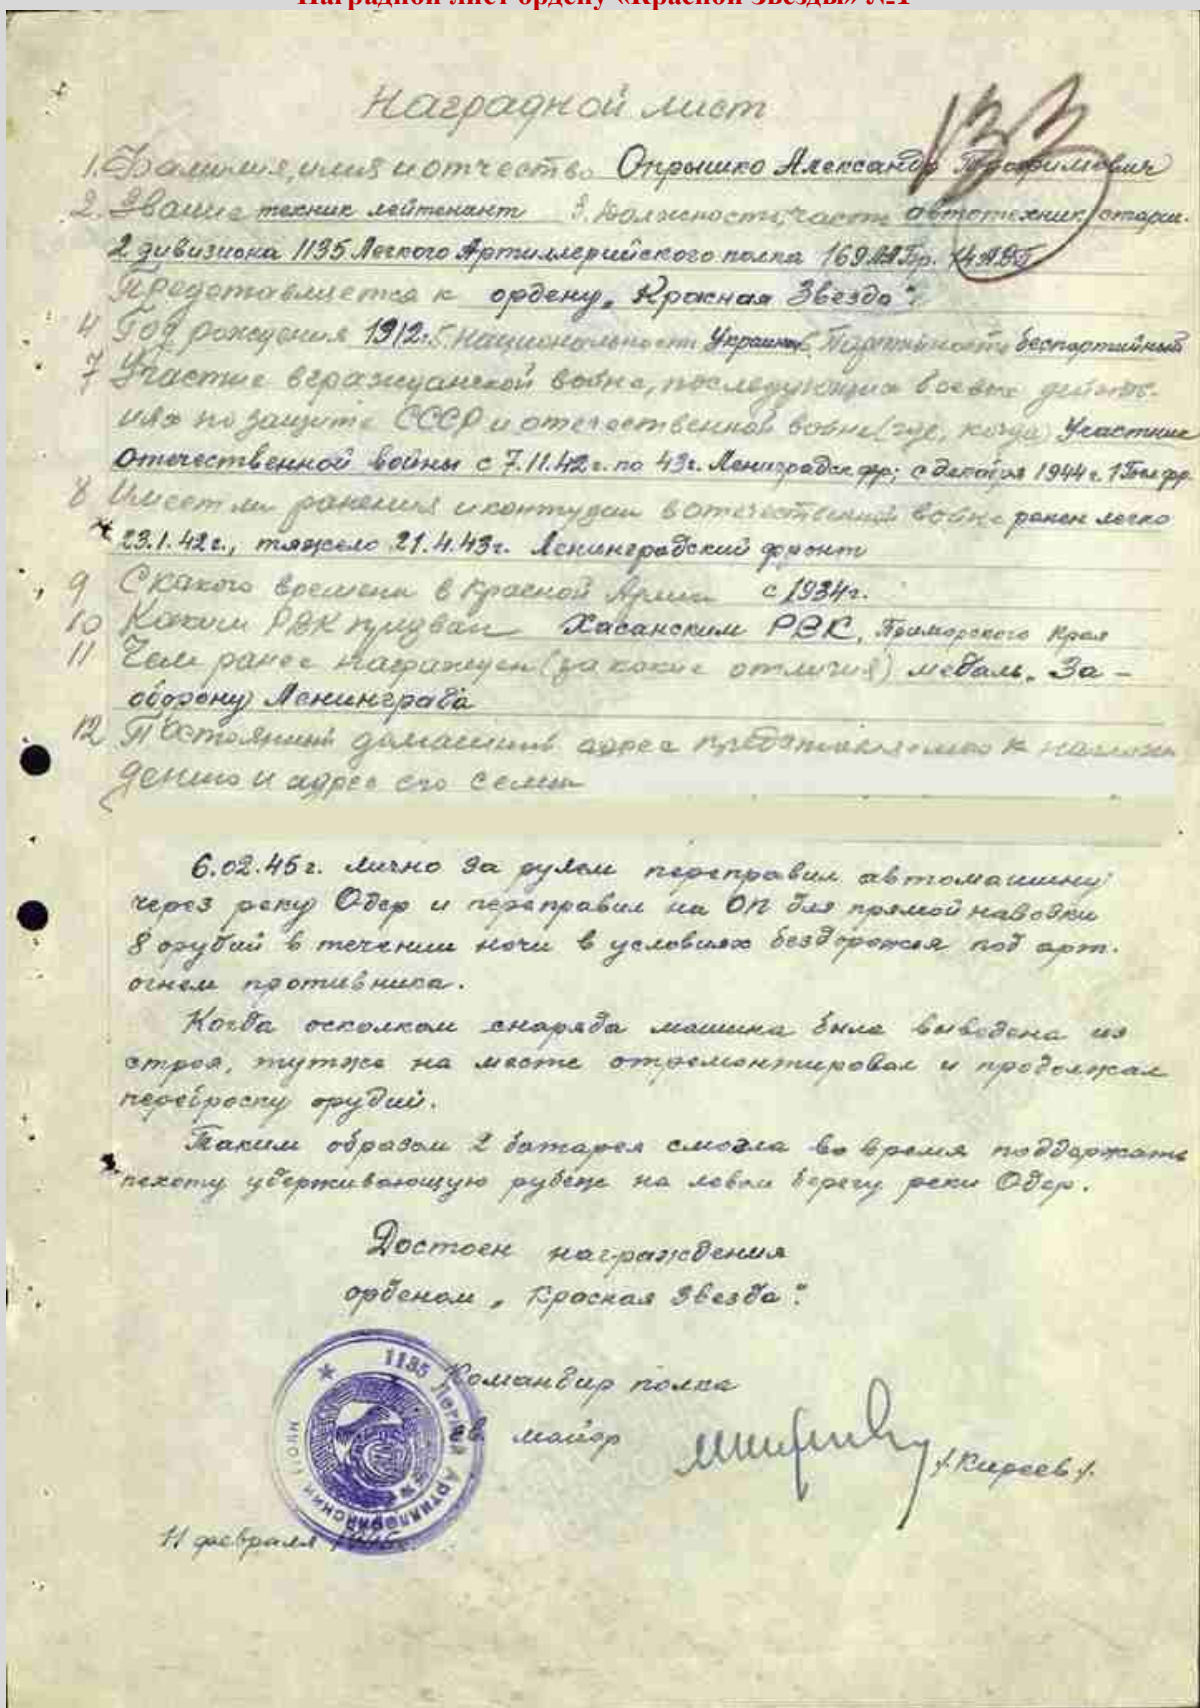 Наградной лист ордену «Красной Звезды» №1
133
Наградной лист
1. Фамилия, имя и отчество Опрышко Александр Трофимович
2. Звание техник лейтенант 3. Должность, часть автотехник, старш.
2 дивизиона 1135 Легкого Артиллерийского полка 169
Представляется к ордену „Красная Звезда".
4 Год рождения 1912г. 5. Национальность Украинец 6. Партийность беспартийный
7 Участие в гражданской войне, последующих боевых действ-
иях по защите СССР и отечественной войне (где, когда) Участник
Отечественной войны с 7.11.42г. по 43г. Ленинградск. фр; с декабря 1944г. 1 Бел. фр.
8 Имеет ли ранения и контузии в отечественной войне ранен легко
23.1.42г., тяжело 21.4.43г. Ленинградский фронт
9 С какого времени в Красной Армии с 1934г.
10 Каким РВК призван Хасанским РВК, Приморского Края
11 Чем ранее награжден (за какие отличия) медаль „За -
оборону Ленинграда
12 Постоянный домашний адрес представляемого к награж
дению и адрес его семьи
6.02.45г. лично за рулем переправил автомашину
через реку Одер и переправил на ОП для прямой наводки
8 орудий в течении ночи в условиях бездорожья под арт.
огнем противника.
Когда осколком снаряда машина была выведена из
строя, тутже на месте отремонтировал и продолжал
переброску орудий.
Таким образом 2 батарея смогла во время поддержать
пехоту удерживающую рубеж на левом берегу реки Одер.
Достоен награждения
орденом „Красная Звезда".
Командир полка
гв. майор /Киреев/.
1135 Легкий Артиллерийский полк
11 февраля 1945г.